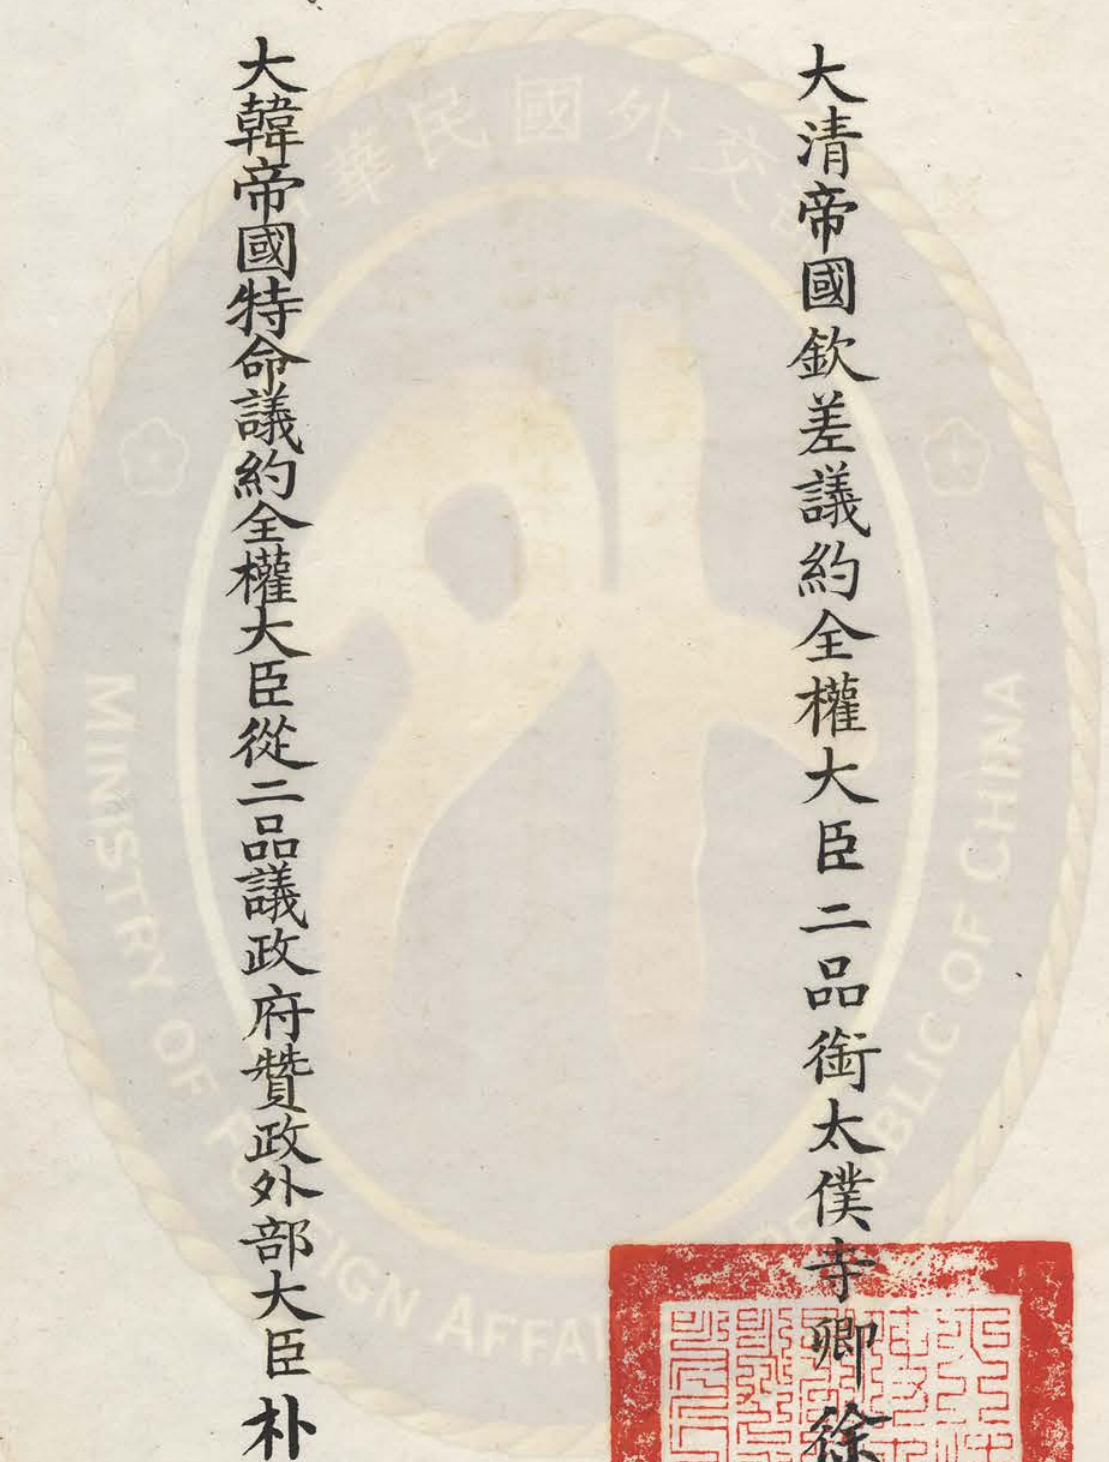 大清帝國欽差議約全權大臣二品銜太僕寺卿徐
大韓帝國特命議約全權大臣從二品議政府贊政外部大臣朴
華民國外交
MINISTRY OF FOREIGN AFFAI
REPUBLIC OF CHINA